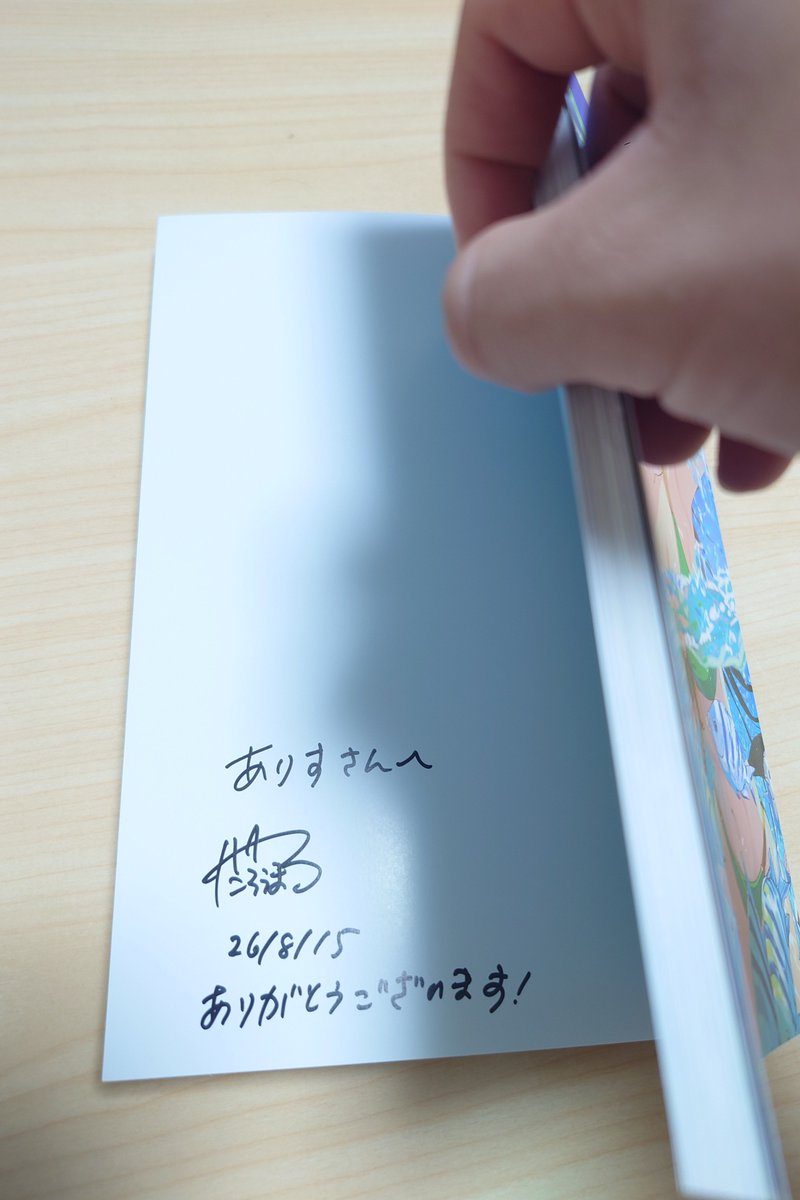 ありすさんへ
ころまる
26/8/15
ありがとうございます!